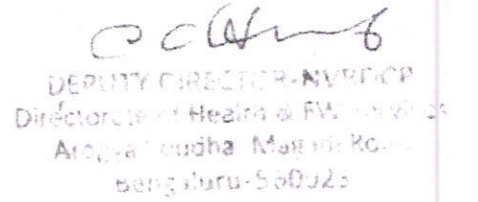 DEPUTY DIRECTOR-NVBDCP
Directorate of Health & FW
Arogya Soudha Magadi Ro
Bengaluru-560023